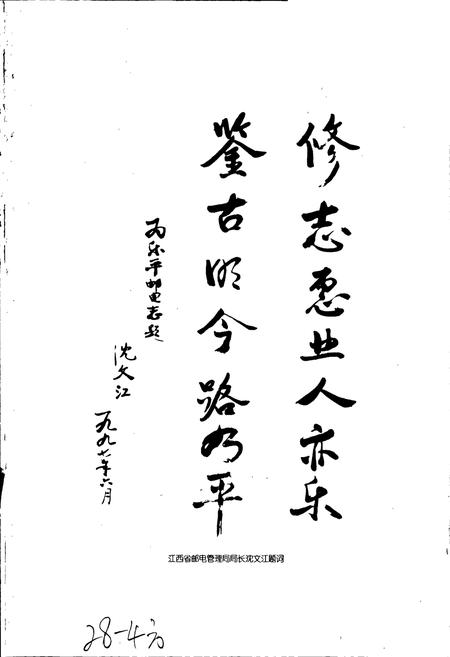 修志惠业人亦乐
鉴古明今路乃平
为乐平邮电志题
沈文江
一九九七年六月
江西省邮电管理局局长沈文江题词
28-4